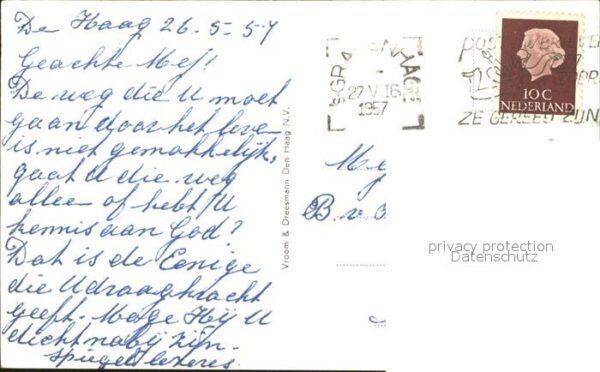 De Haag 26-5-57
Geachte Mej!
De weg die U moet
gaan door het leven
is niet gemakkelijk,
gaat U die weg
alleen of hebt U
kennis aan God?
Dat is de Eenige
die U draagkracht
geeft. Moge Hij U
dicht nabij zijn.
Spiegellezeres.
Vroom & Dreesmann Den Haag N.V.
27 V 16
1957
10 C
NEDERLAND
ZE GEREED ZIJN
Me
B. v.
privacy protection
Datenschutz